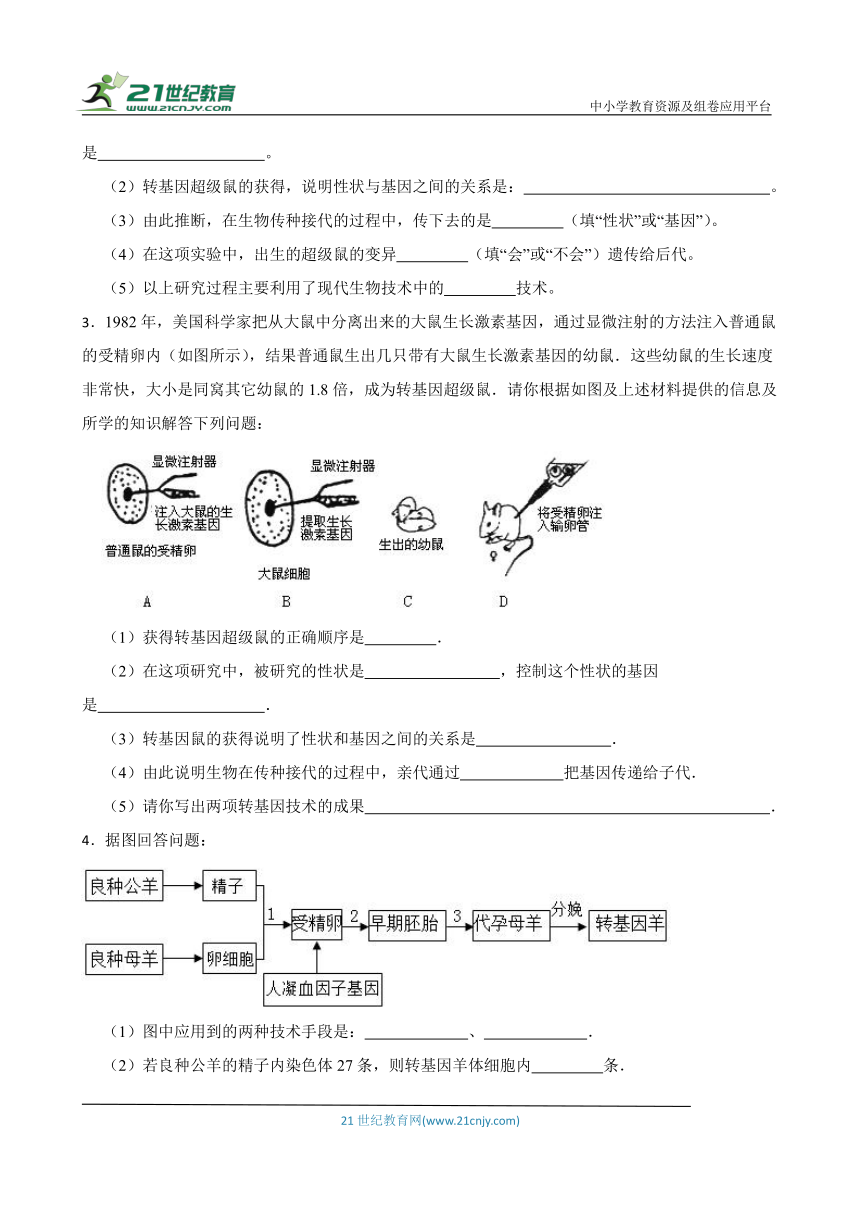 21世纪教育
WWW.21CNJY.COM
中小学教育资源及组卷应用平台
是 。
(2)转基因超级鼠的获得,说明性状与基因之间的关系是: 。
(3)由此推断,在生物传种接代的过程中,传下去的是 (填“性状”或“基因”)。
(4)在这项实验中,出生的超级鼠的变异 (填“会”或“不会”)遗传给后代。
(5)以上研究过程主要利用了现代生物技术中的 技术。
3.1982年,美国科学家把从大鼠中分离出来的大鼠生长激素基因,通过显微注射的方法注入普通鼠
的受精卵内(如图所示),结果普通鼠生出几只带有大鼠生长激素基因的幼鼠.这些幼鼠的生长速度
非常快,大小是同窝其它幼鼠的1.8倍,成为转基因超级鼠.请你根据如图及上述材料提供的信息及
所学的知识解答下列问题:
显微注射器
注入大鼠的生
长激素基因
普通鼠的受精卵
显微注射器
提取生长
激素基因
大鼠细胞
生出的幼鼠
将受精卵注
入输卵管
♀
A B C D
(1)获得转基因超级鼠的正确顺序是 .
(2)在这项研究中,被研究的性状是 ,控制这个性状的基因
是 .
(3)转基因鼠的获得说明了性状和基因之间的关系是 .
(4)由此说明生物在传种接代的过程中,亲代通过 把基因传递给子代.
(5)请你写出两项转基因技术的成果 .
4.据图回答问题:
良种公羊 精子
1 受精卵 2 早期胚胎 3 代孕母羊 分娩 转基因羊
良种母羊 卵细胞
人凝血因子基因
(1)图中应用到的两种技术手段是: 、 .
(2)若良种公羊的精子内染色体27条,则转基因羊体细胞内 条.
21世纪教育网(www.21cnjy.com)